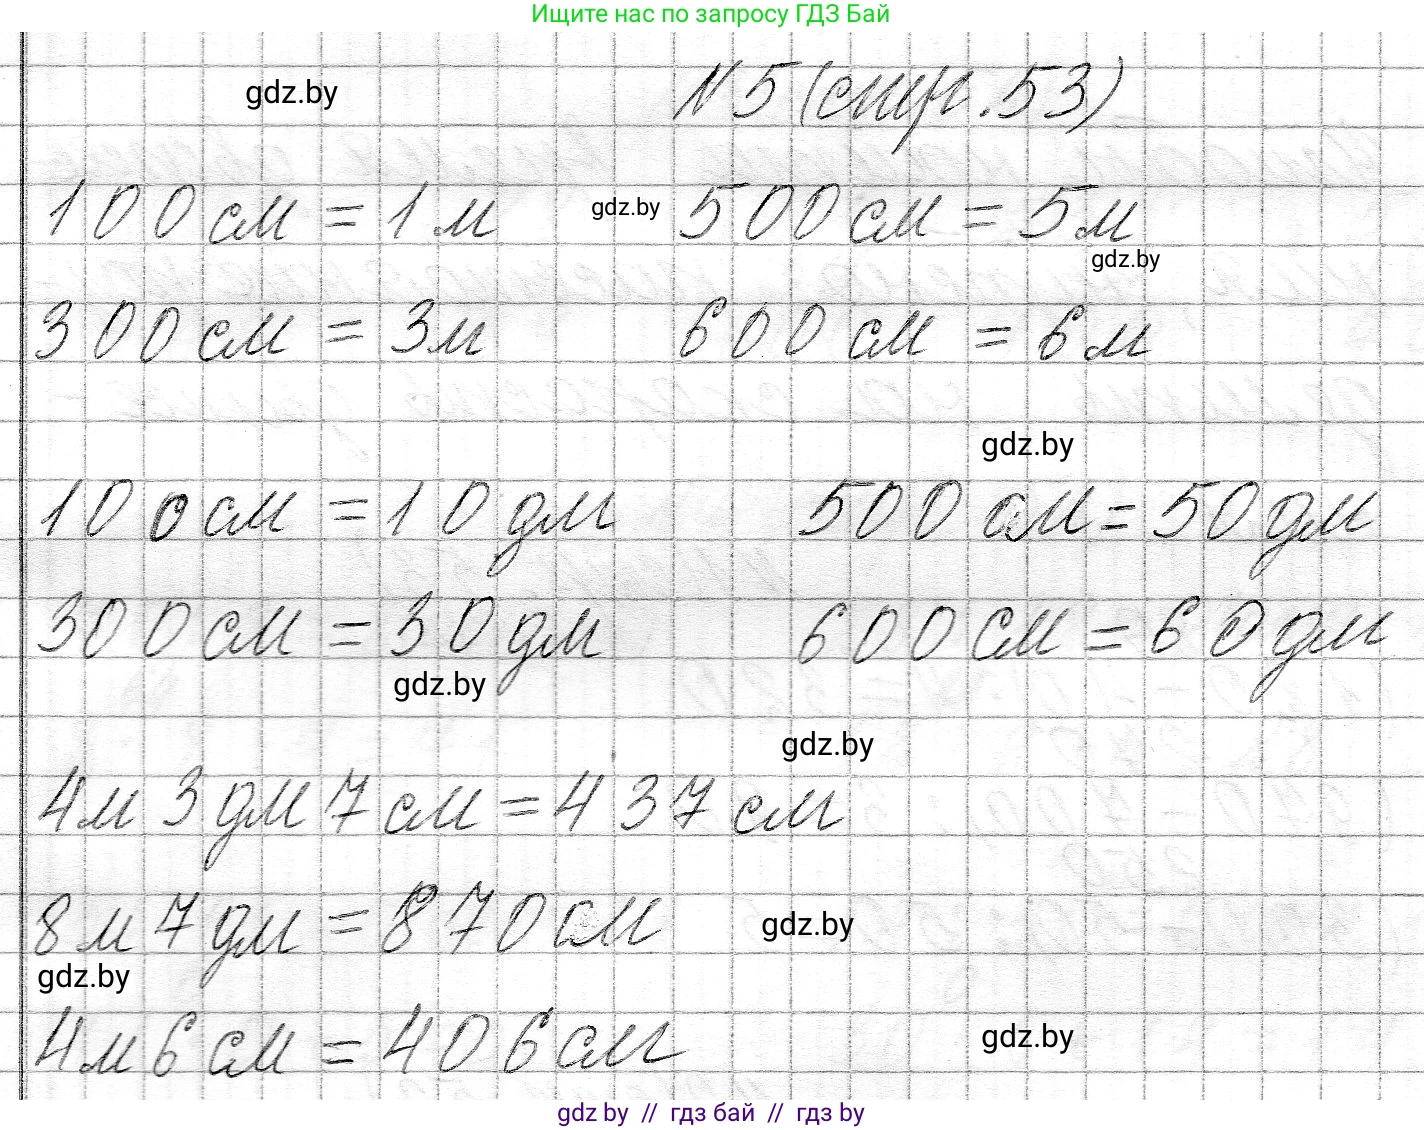 Ищите нас по запросу ГДЗ Бай
gdz.by № 5 (стр. 53)
100 см = 1 м gdz.by 500 см = 5 м
gdz.by
300 см = 3 м 600 см = 6 м
gdz.by
100 см = 10 дм 500 см = 50 дм
300 см = 30 дм 600 см = 60 дм
gdz.by
gdz.by
4 м 3 дм 7 см = 437 см
8 м 7 дм = 870 см gdz.by
gdz.by
4 м 6 см = 406 см gdz.by
gdz.by // гдз бай // гдз by